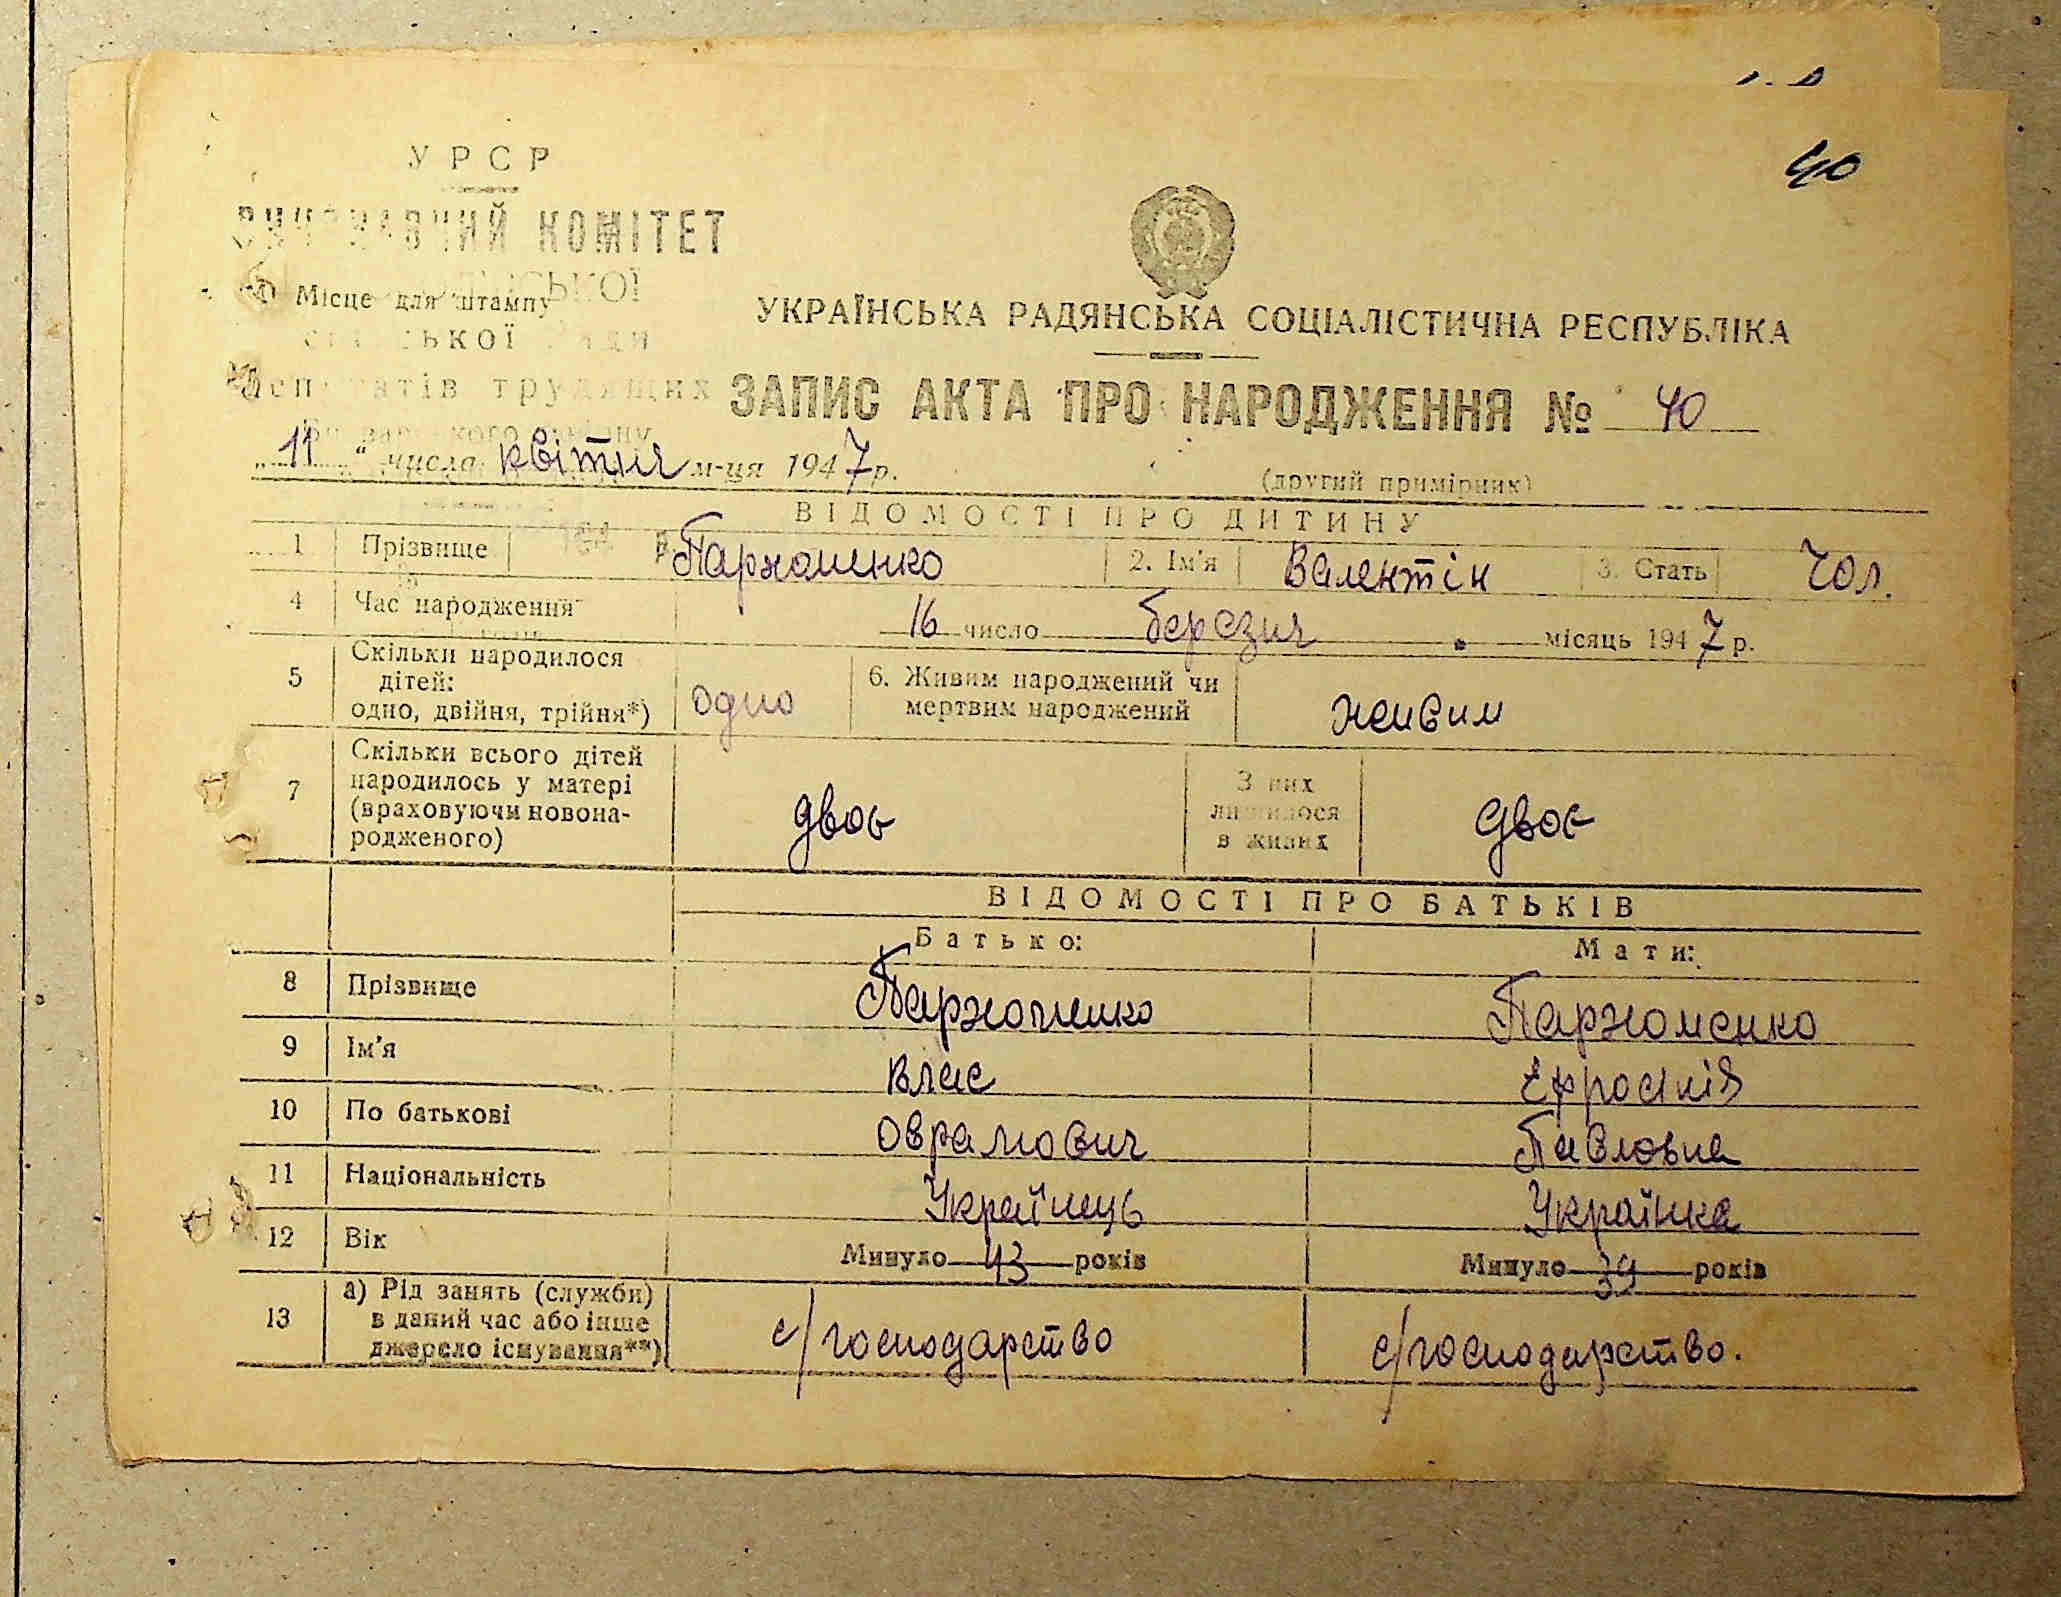 40
УРСР
ВИКОНАВЧИЙ КОМІТЕТ
Місце для штампу
УКРАЇНСЬКА РАДЯНСЬКА СОЦІАЛІСТИЧНА РЕСПУБЛІКА
депутатів трудящих
ЗАПИС АКТА ПРО НАРОДЖЕННЯ № 40
„11“ числа квітня м-ця 1947 р.
(другий примірник)
ВІДОМОСТІ ПРО ДИТИНУ
1 Прізвище Пархоменко 2. Ім'я Валентін 3. Стать Чол.
4 Час народження 16 число березня місяць 1947 р.
5 Скільки народилося дітей: одно, двійня, трійня*) одно 6. Живим народжений чи мертвим народжений живим
7 Скільки всього дітей народилось у матері (враховуючи новонародженого) двоє З них лишилося в живих двоє
ВІДОМОСТІ ПРО БАТЬКІВ
Батько: Мати:
8 Прізвище Пархоменко Пархоменко
9 Ім'я Влас Ефросинія
10 По батькові Оврамович Павловна
11 Національність Українець Українка
12 Вік Минуло 43 років Минуло 39 років
13 а) Рід занять (служби) в даний час або інше джерело існування**) с/господарство с/господарство.